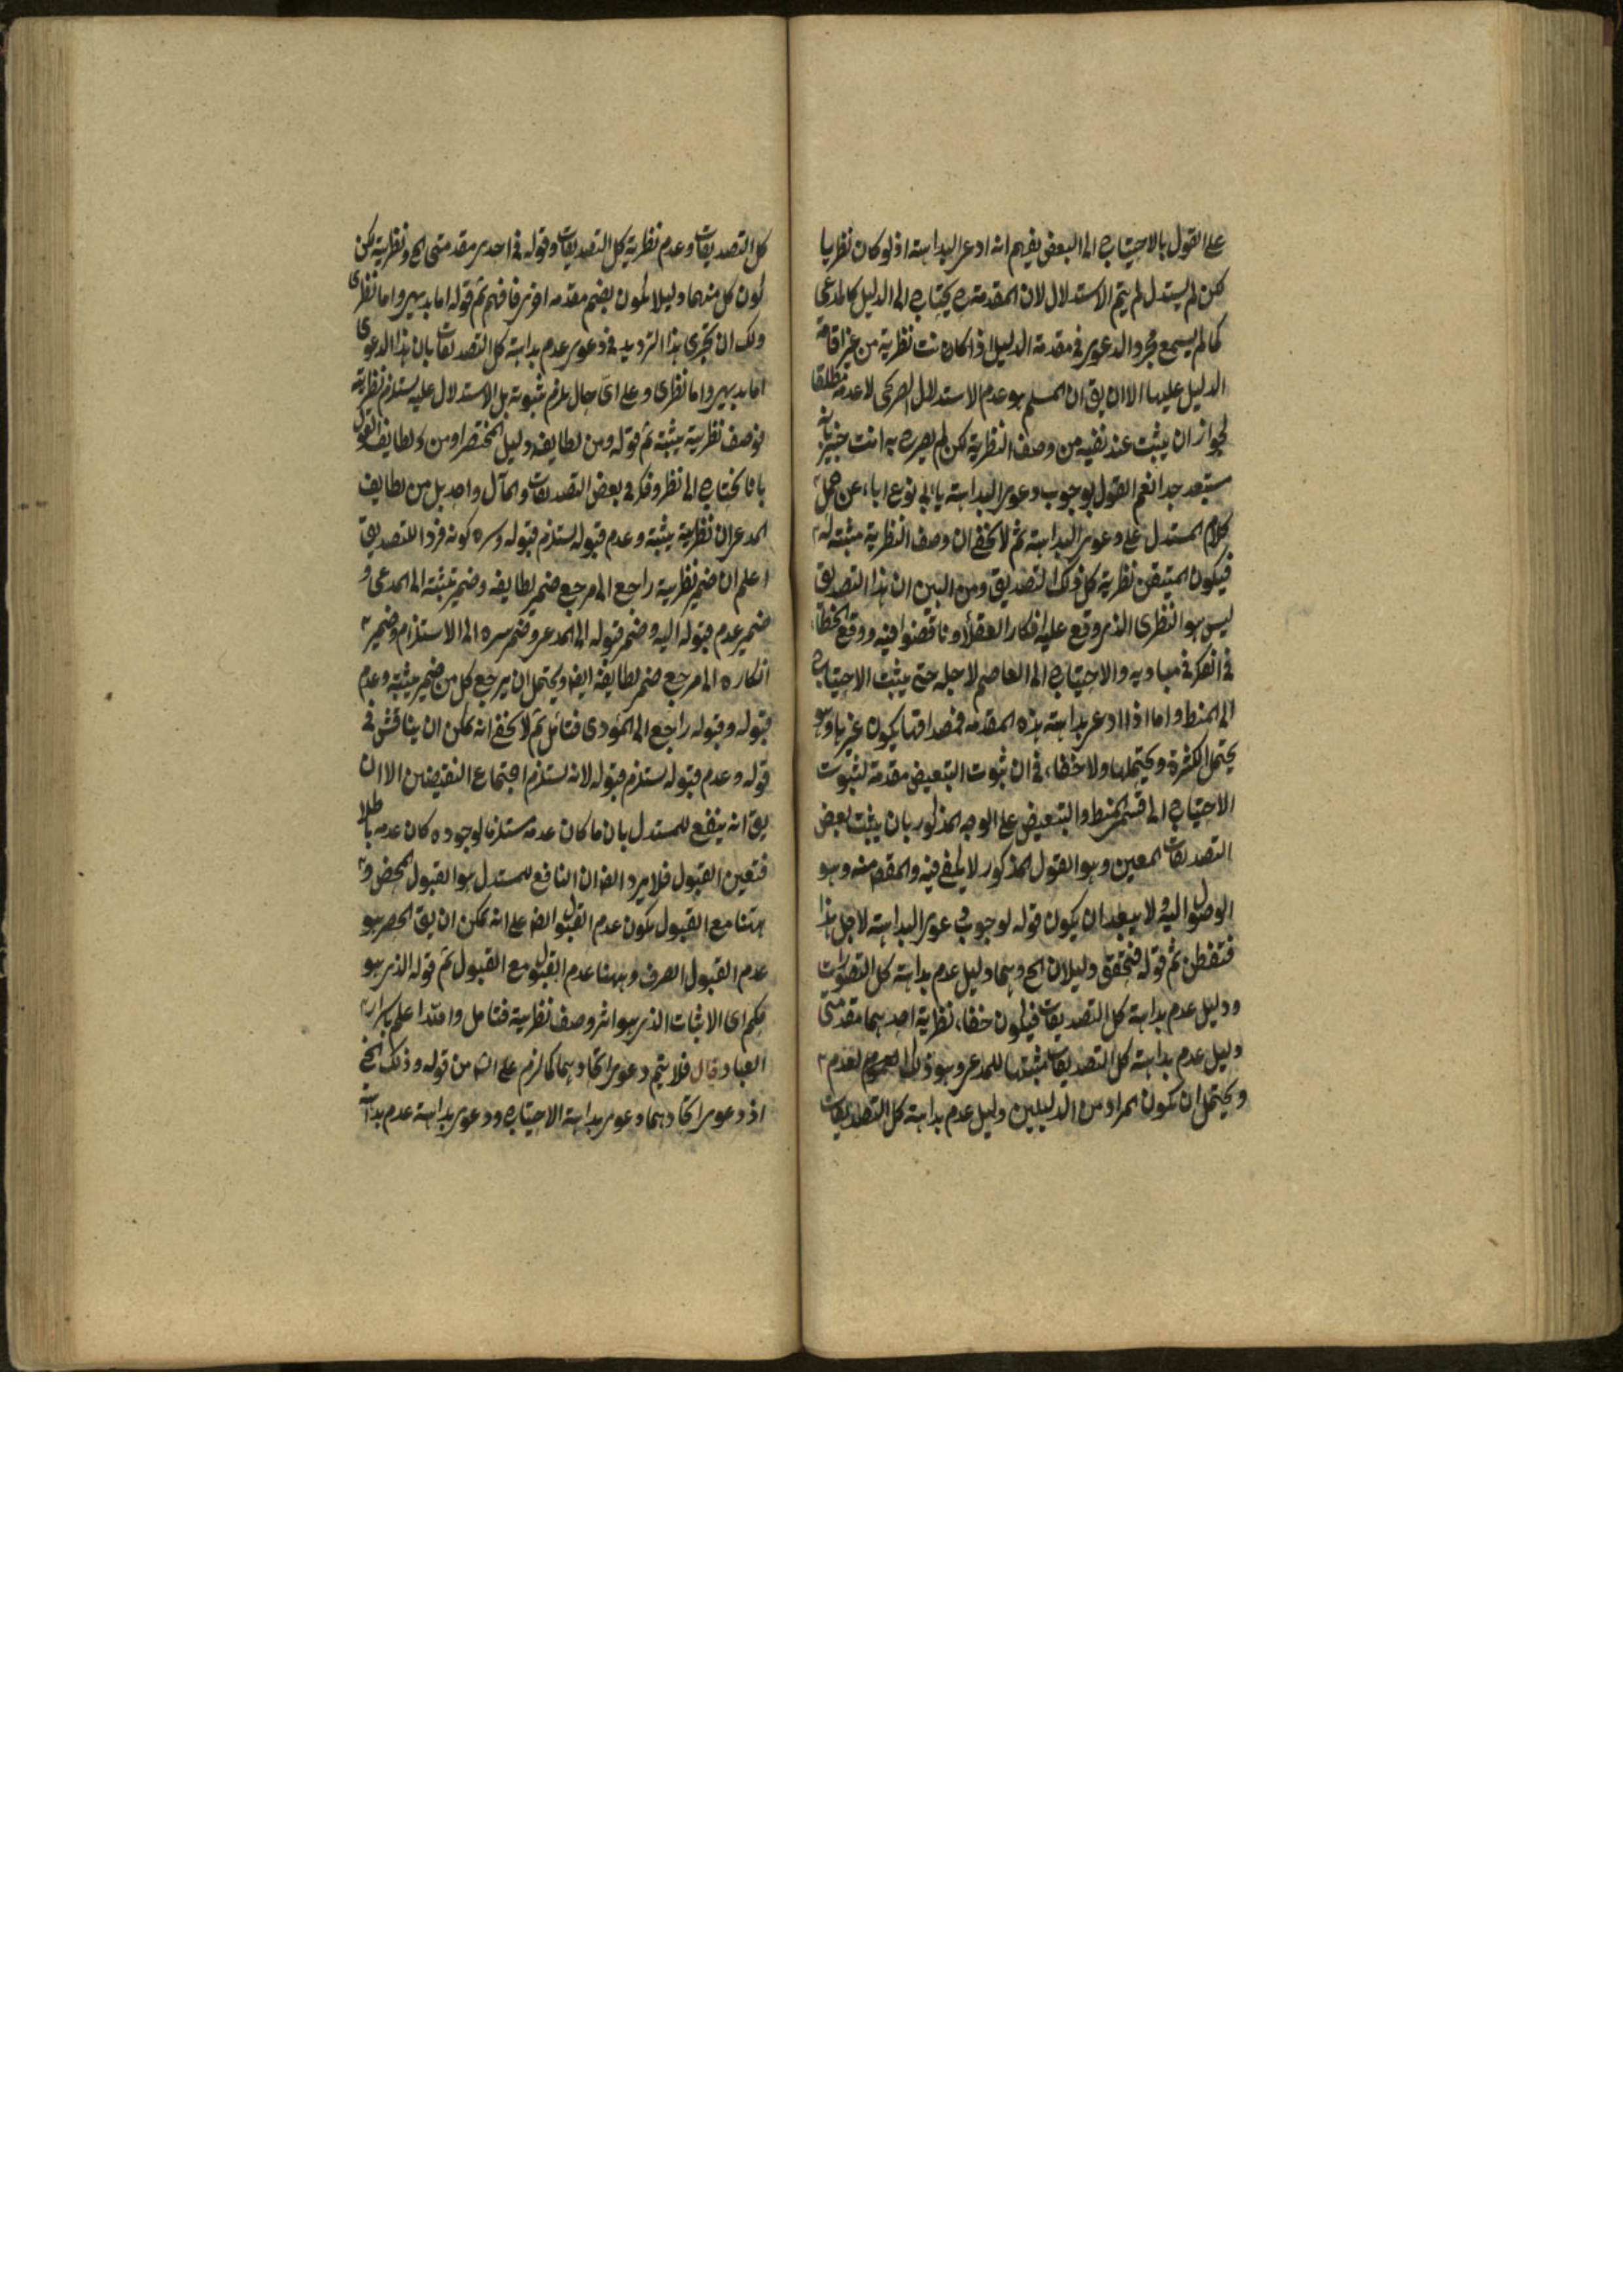 على القول بالاحتياج الى البعض يفهم انه ادعى البداهة اذ لو كان نظريا
لكن لم يستدل لم يتم الاستدلال لان المقدمة يحتاج الى الدليل كالمدعى
كما لم يسمع مجرد الدعوى في مقدمة الدليل اذا كانت نظرية من غير اقامة
الدليل عليها الا ان يق ان المسلم هو عدم الاستدلال الصريحى لا عدمه مطلقا
لجواز ان يثبت عند نفسه من وصف النظرية لكن لم يصرح به انت خبير بانه
مستبعد جدا نعم القول بوجوب دعوى البداهة يابى نوع اباء عن حمل
كلام المستدل على دعوى البداهة ثم لا يخفى ان وصف النظرية مثبتة له
فيكون المتيقن نظرية كل ذلك التصديق ومن البين ان هذا التصديق
ليس هو النظرى الذى وقع عليه افكار العقلاء وناقضوا فيه ووقع الخطاء
في الفكر في مباديه والاحتياج الى العاصم لاجله حتى يثبت الاحتياج
الى المنط واما اذا ادعى بداهة هذه المقدمة فمصداقها يكون غيرها وهو
يحتمل الكثرة ويحتملها ولا خفاء في ان ثبوت التبعيض مقدمة لثبوت
الاحتياج الى قسمى المنط والتبعيض على الوجه المذكور بان يثبت بعض
التصديقات المعين وهو القول المذكور لا يكفى فيه والمقصد منه وهو
الوصول اليه ولا يبعد ان يكون قوله لوجوب دعوى البداهة لاجل هذا
فتفطن ثم قوله فتحقق دليلان الح وهما دليل عدم بداهة كل التصورات
ودليل عدم بداهة كل التصديقات فيكون خفاء نظرية احدهما مقدمتى
دليل عدم بداهة كل التصديقات مثبتها للمدعى وهو ذلك العموم لعدم
ويحتمل ان يكون المراد من الدليلين دليل عدم بداهة كل التصديقات
كل التصديقات وعدم نظرية كل التصديقات وقوله في احدى مقدمتى الح ونظرية لكن
لكون كل منهما دليلا يكون بضم مقدمة اخرى فافهم ثم قوله اما بديهى واما نظرى
ولك ان تجرى هذا الترديد في دعوى عدم بداهة كل التصديقات بان هذا الدعوى
اما بديهى واما نظرى وعلى اى حال يلزم ثبوته بل الاستدلال عليه يستلزم نظريته
فوصف نظرية يثبته ثم قوله ومن لطايف دليل المختصر او من لطايف القول
بانا نحتاج الى نظر وفكر في بعض التصديقات والمآل واحد بل من لطايف
المدعى ان نظرية يثبته وعدم قبوله يستلزم قبوله وسره كونه فردا للتصديق
اعلم ان ضمير نظرية راجع الى مرجع ضمير لطايفه وضمير تثبته الى المدعى و
ضمير عدم قبوله اليه وضمير قبوله الى المدعى وضمير سره الى الاستلزام وضمير
انكاره الى مرجع ضمير لطايفه ايضا ويحتمل ان يرجع كل من ضمير يثبته وعدم
قبوله وقبوله راجع الى المؤدى فتأمل ثم لا يخفى انه يمكن ان يناقش في
قوله وعدم قبوله يستلزم قبوله لانه يستلزم اجتماع النقيضين الا ان
يق انه ينفع للمستدل بان ما كان عدمه مستلزما لوجوده كان عدمه باطلا
فتعين القبول فلا يرد ايضا ان النافع للمستدل هو القبول المحض و
ههنا مع القبول يكون عدم القبول ايضا على انه يمكن ان يق المحصر هو
عدم القبول الصرف وههنا عدم القبول مع القبول ثم قوله الذى هو
حكم اى الاثبات الذى هو اثر وصف نظرية فتامل والله اعلم باسرار
العباد قال فلا يتم دعوى اتحادهما كما لزم على الش من قوله وذلك الح
اذ دعوى اتحادهما دعوى بداهة الاحتياج ودعوى بداهة عدم بداهة